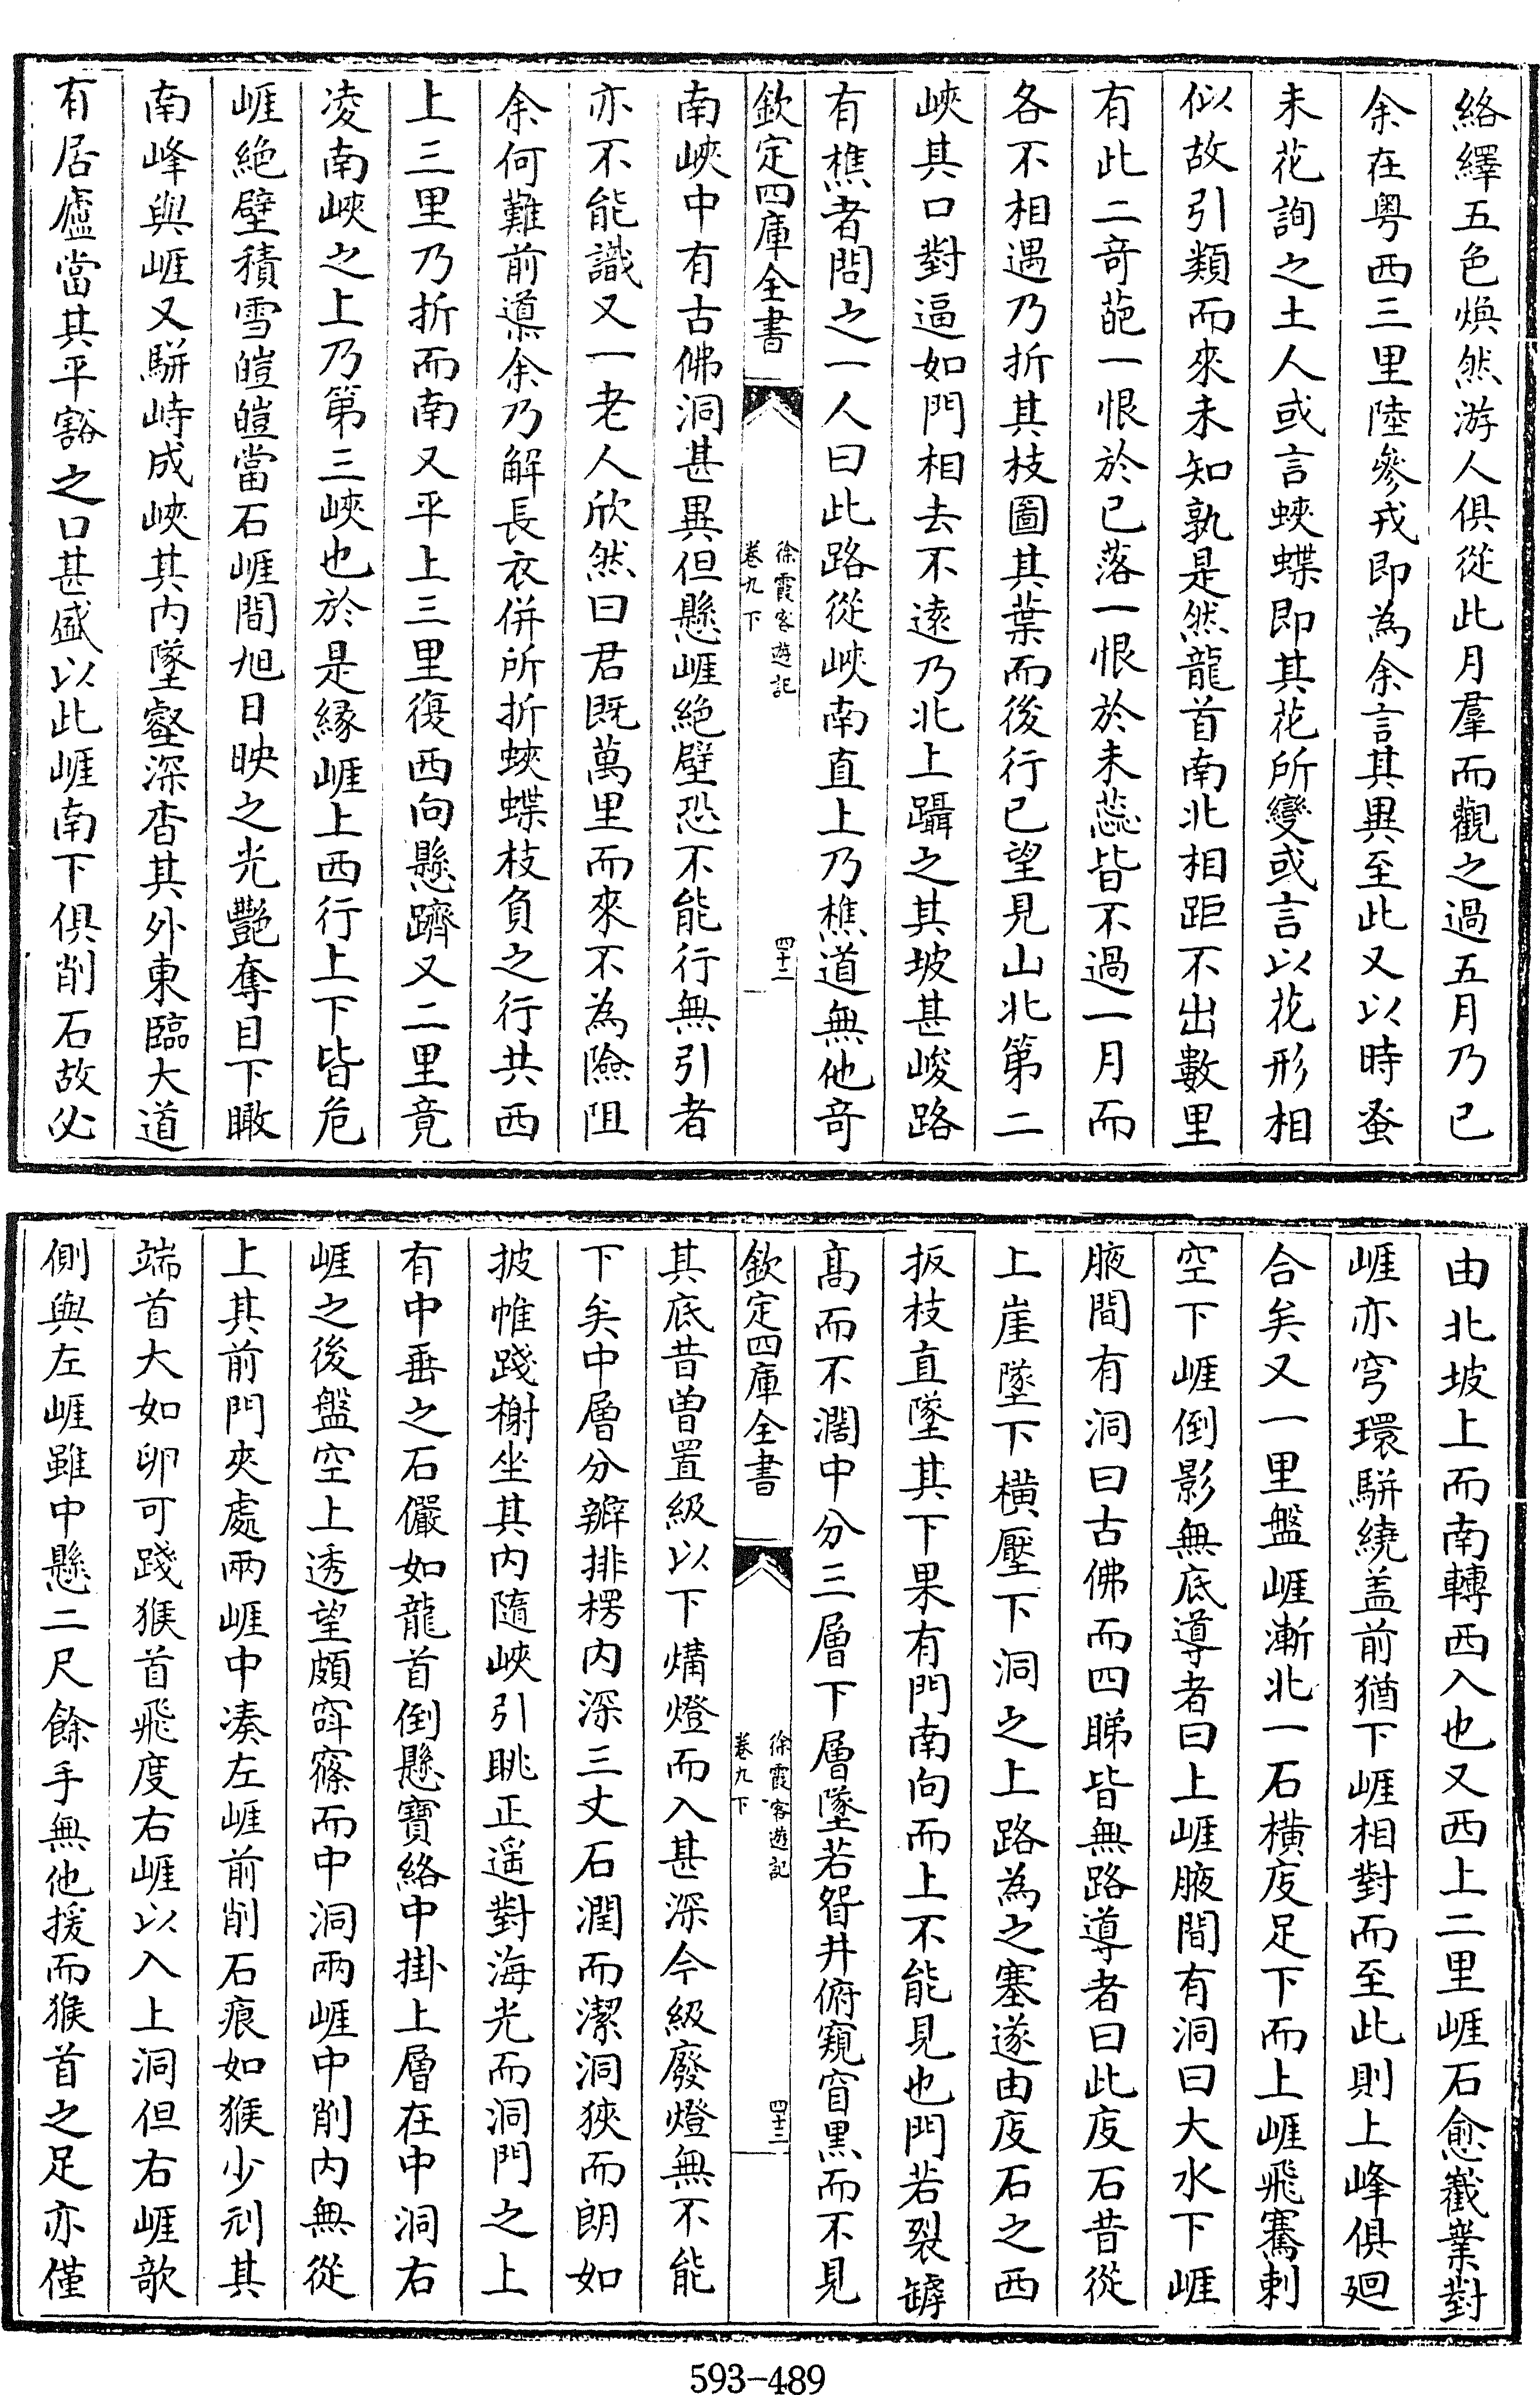 絡繹五色煥然游人俱從此月羣而觀之過五月乃已
余在粤西三里陸參戎即為余言其異至此又以時蚤
未花詢之土人或言蛺蝶即其花所變或言以花形相
似故引類而來未知孰是然龍首南北相距不出數里
有此二奇葩一恨於已落一恨於未蕊皆不過一月而
各不相遇乃折其枝圖其葉而後行已望見山北第二
峽其口對逼如門相去不遠乃北上躡之其坡甚峻路
有樵者問之一人曰此路從峽南直上乃樵道無他奇
欽定四庫全書
徐霞客遊記
卷九下
四十二
南峽中有古佛洞甚異但懸崕絶壁恐不能行無引者
亦不能識又一老人欣然曰君既萬里而來不為險阻
余何難前導余乃解長衣併所折蛺蝶枝負之行共西
上三里乃折而南又平上三里復西向懸躋又二里竟
凌南峽之上乃第三峽也於是緣崕上西行上下皆危
崕絶壁積雪皚皚當石崕間旭日映之光艷奪目下瞰
南峰與崕又駢峙成峽其内墜壑深杳其外東臨大道
有居廬當其平豁之口甚盛以此崕南下俱削石故必
由北坡上而南轉西入也又西上二里崕石愈巀嶪對
崕亦穹環駢繞盖前猶下崕相對而至此則上峰俱廻
合矣又一里盤崕漸北一石橫庋足下而上崕飛騫刺
空下崕倒影無底導者曰上崕腋間有洞曰大水下崕
腋間有洞曰古佛而四睇皆無路導者曰此庋石昔從
上崖墜下橫壓下洞之上路為之塞遂由庋石之西
扳枝直墜其下果有門南向而上不能見也門若裂罅
高而不濶中分三層下層墜若眢井俯窺窅黒而不見
欽定四庫全書
徐霞客遊記
卷九下
四十三
其底昔曾置級以下爇燈而入甚深今級廢燈無不能
下矣中層分瓣排楞内深三丈石潤而潔洞狹而朗如
披帷踐榭坐其内隨峽引眺正遥對海光而洞門之上
有中垂之石儼如龍首倒懸寶絡中掛上層在中洞右
崕之後盤空上透望頗窙窱而中洞兩崕中削内無從
上其前門夾處兩崕中湊左崕前削石痕如猴少刓其
端首大如卵可踐猴首飛度右崕以入上洞但右崕欹
側與左崕雖中懸二尺餘手無他援而猴首之足亦僅
593-489